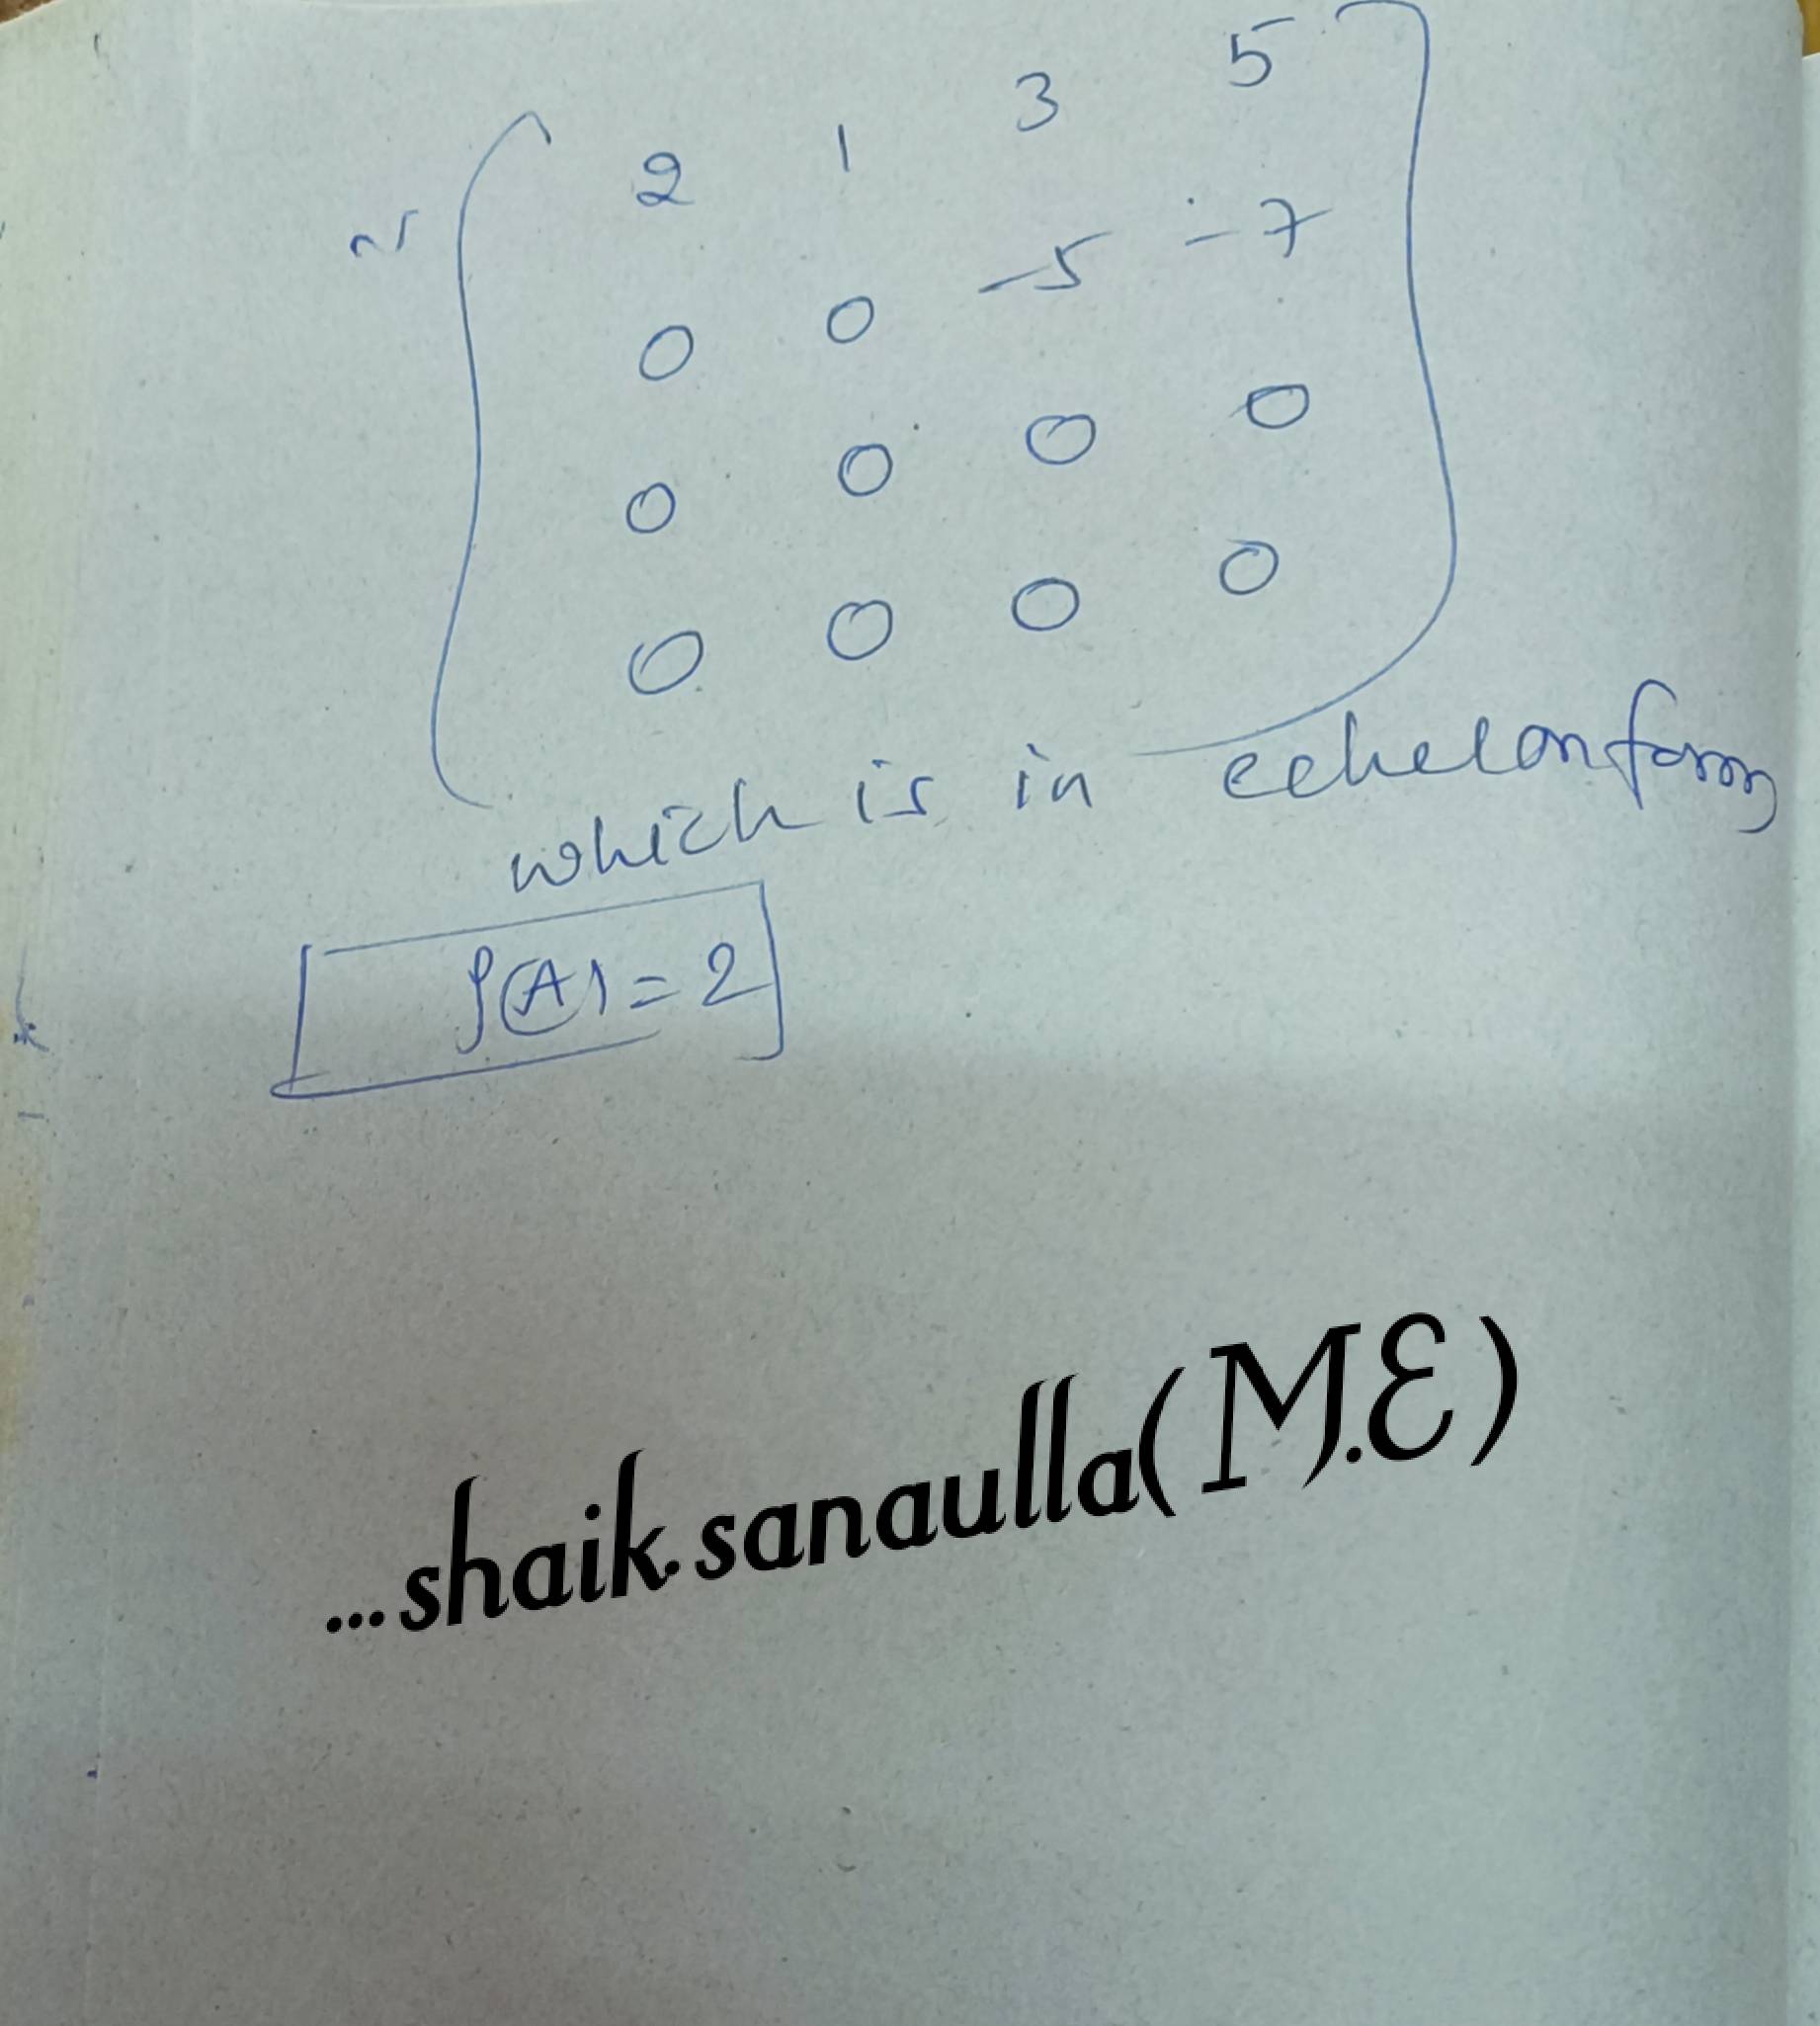 ~ 2 1 3 5
0 0 -5 -7
0 0 0 0
0 0 0 0
which is in echelon form
ρ(A) = 2
...shaik.sanaulla(M.E)